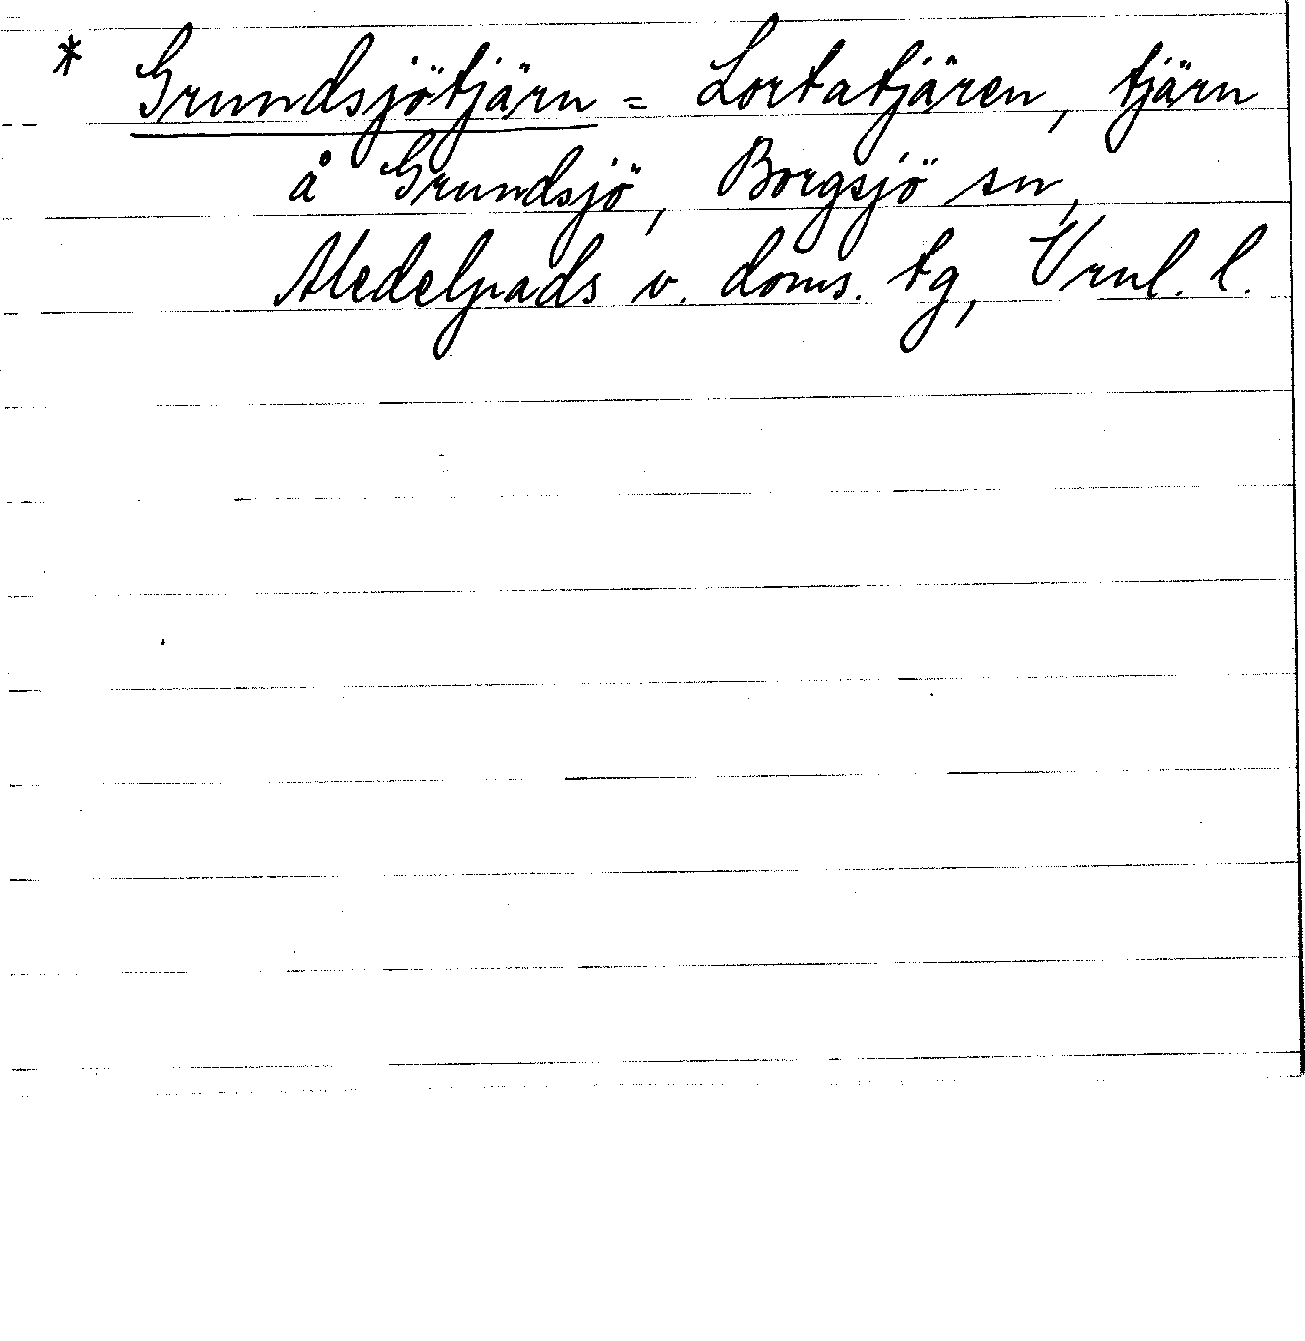 * Grundsjötjärn = Lortatjären, tjärn
å Grundsjö, Borgsjö sn,
Medelpads v. doms. tg, Vrnl. l.